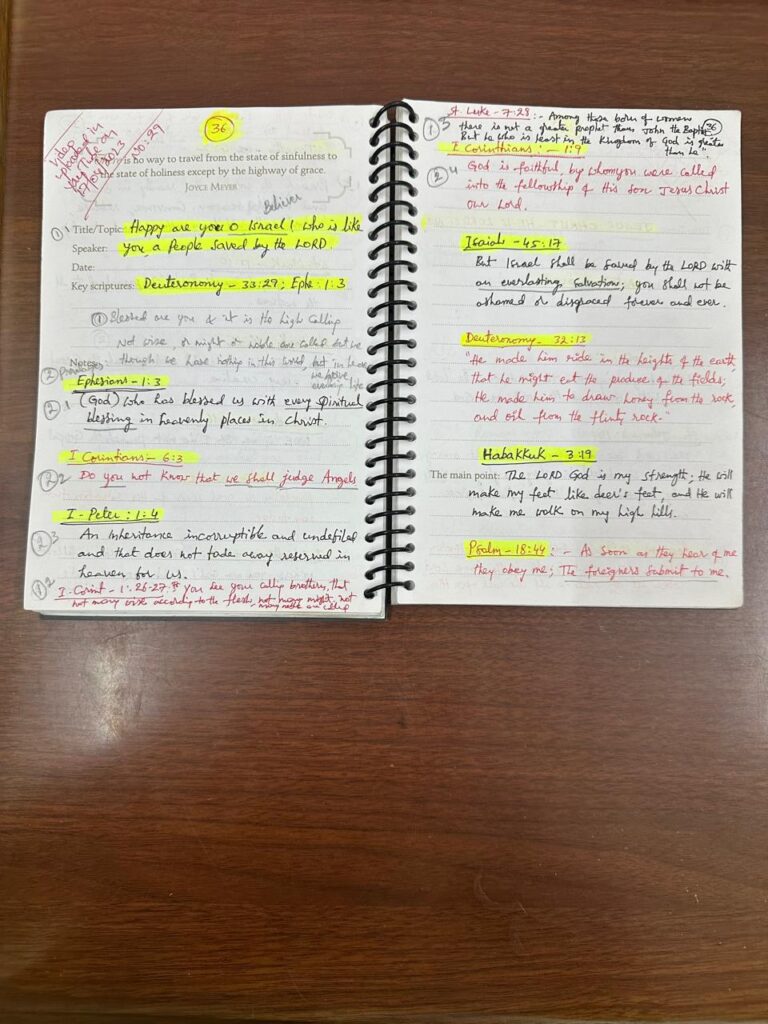 Video
uploaded in
You Tube on
17/04/2023
NO: 29
36
is no way to travel from the state of sinfulness to
the state of holiness except by the highway of grace.
JOYCE MEYER
Believer
① 1 Title/Topic: Happy are you O Israel! Who is like
Speaker: you, a People saved by the LORD.
Date:
Key scriptures: Deuteronomy - 33:29; Eph: 1:3
① Blessed are you & it is the high Calling
Not wise, or might or noble are called but we
Notes: though we have nothing in this world, but in
② Privileges
Ephesians - 1:3
② 1 (God) Who has blessed us with every Spiritual
blessing in heavenly places in Christ.
I Corintians - 6:3
② 2 Do you not know that we shall judge Angels
I - Peter : 1:4
② 3 An Inheritance incorruptible and undefiled
and that does not fade away reserved in
heaven for us.
① 2 I - Corint - 1:26-27: you see your calling brothers, that
not many wise according to the flesh, not many might, not
many noble are called
① 3 St Luke - 7:28 :- Among those born of women 36
there is not a greater prophet than John the Baptist
But he who is least in the Kingdom of God is greater
than he".
I Corinthians : - 1:9
② 4 God is faithful, by whom you were called
into the fellowship of His son Jesus Christ
our Lord.
Isaiah - 45:17
But Israel shall be saved by the LORD with
an everlasting salvation; you shall not be
ashamed or disgraced forever and ever.
Deuteronomy - 32:13
"He made him ride in the heights of the earth,
that he might eat the produce of the fields;
He made him to draw honey from the rock,
and oil from the flinty rock."
Habakkuk - 3:19
The main point: The LORD God is my strength; He will
make my feet like deer's feet, and He will
make me walk on my high hills.
Psalm - 18:44 : - As soon as they hear of me
they obey me; The foreigners submit to me.